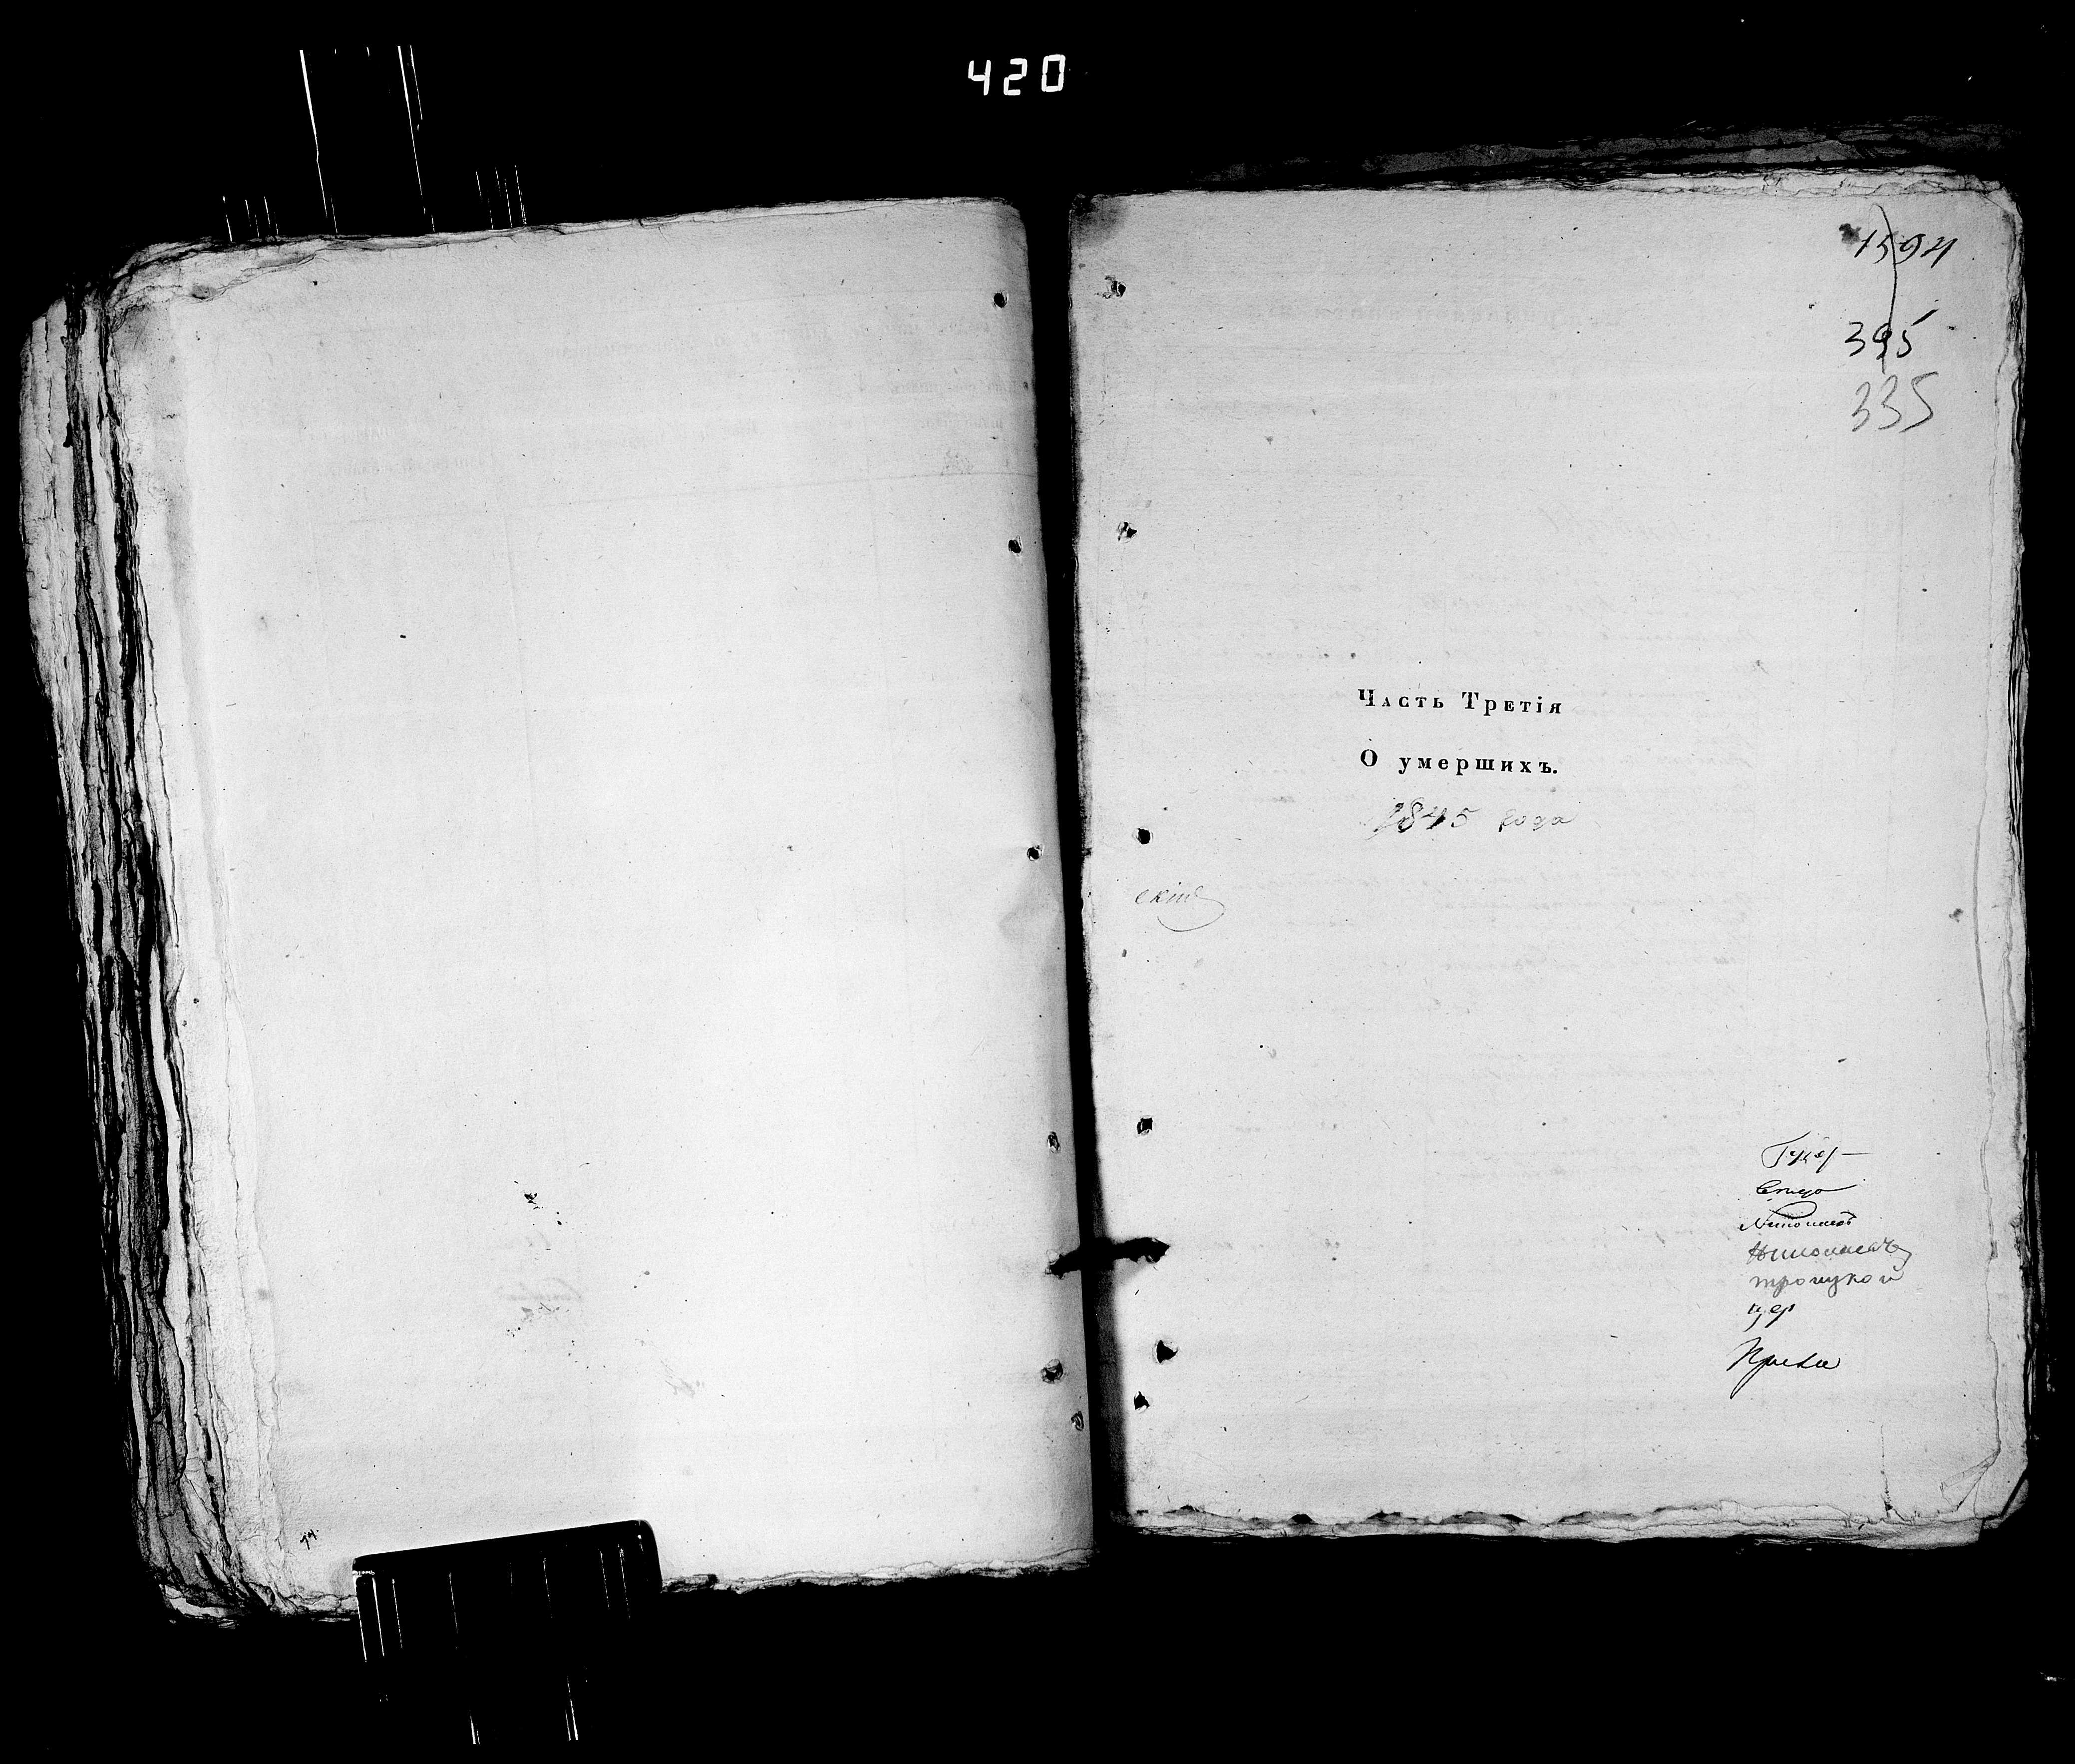 420
1594
395
335
Часть Третія
О умершихъ.
1845 года
скій
троицкой
цер